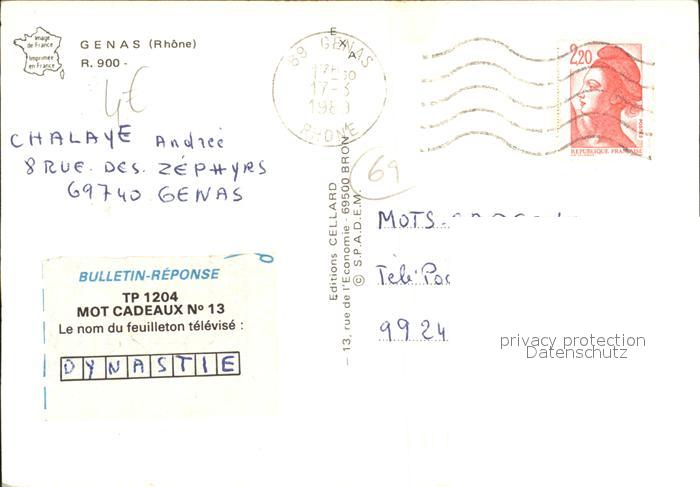 Image
de France
Imprimée
en France
GENAS (Rhône)
R. 900 -
4€
CHALAYE Andrée
8 RUE. DES. ZÉPHYRS
69740 GENAS
BULLETIN-RÉPONSE
TP 1204
MOT CADEAUX Nº 13
Le nom du feuilleton télévisé :
DYNASTIE
Editions CELLARD
– 13, rue de l'Economie - 69500 BRON
© S.P.A.D.E.M.
69 GENAS
17-3
RHONE
2,20
REPUBLIQUE FRANÇAISE
69
MOTS-
Télé Poc
9924
privacy protection
Datenschutz